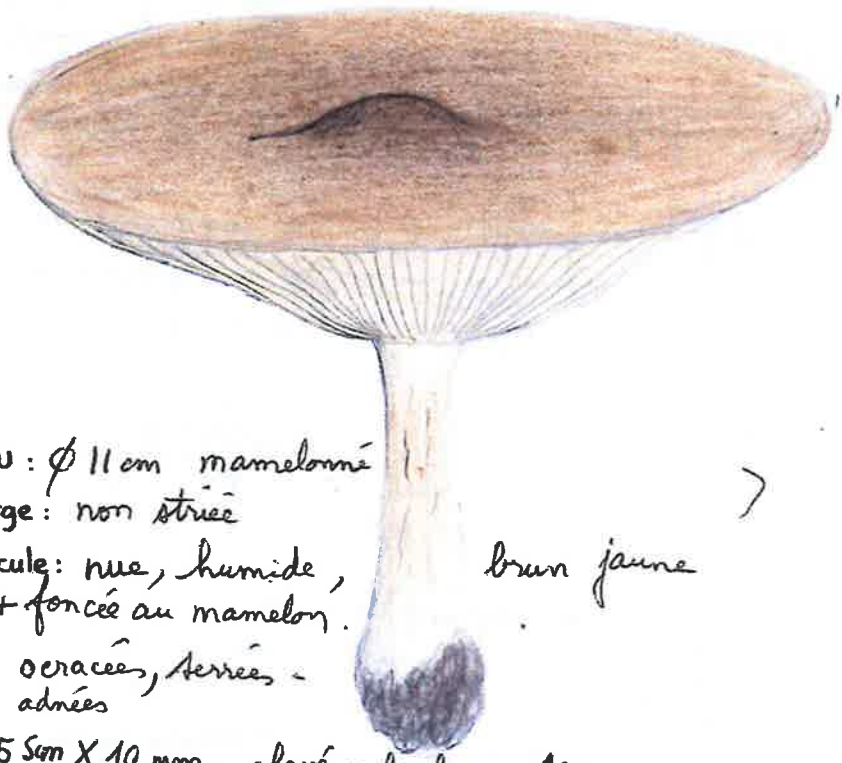 U : ϕ 11 cm mamelonné
ge : non striée
cule : nue, humide, brun jaune
+ foncée au mamelon.
ocracées, serrées -
adnées
5 5cm X 10 mm